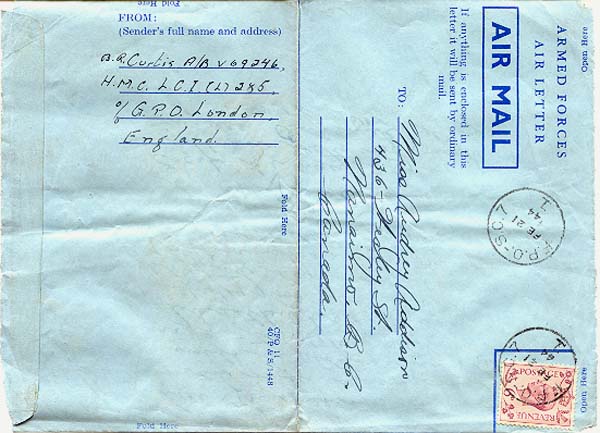 Fold Here
FROM:
(Sender's full name and address)
B.R. Curtis A/B V69246,
H.M.C. L.C.I.(L) 285
c/o G.P.O. London,
England.
Fold Here
CFQ 11
40/P & S/1448
Fold Here
Open Here
ARMED FORCES
AIR LETTER
AIR MAIL
If anything is enclosed in this
letter it will be sent by ordinary
mail.
TO:
Miss Audrey Addison
436 - Wedley St.
Nanaimo, B.C.
Canada.
FE 21
44
Open Here
POSTAGE
REVENUE